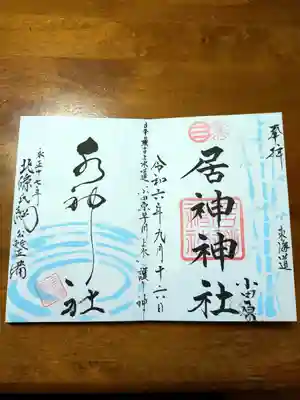 奉拝
東海道
小田原
居神神社
令和六年元月十六日
日本最古上水道小田原早川上水護り神
水神社
永正十七年
北條氏綱公整備